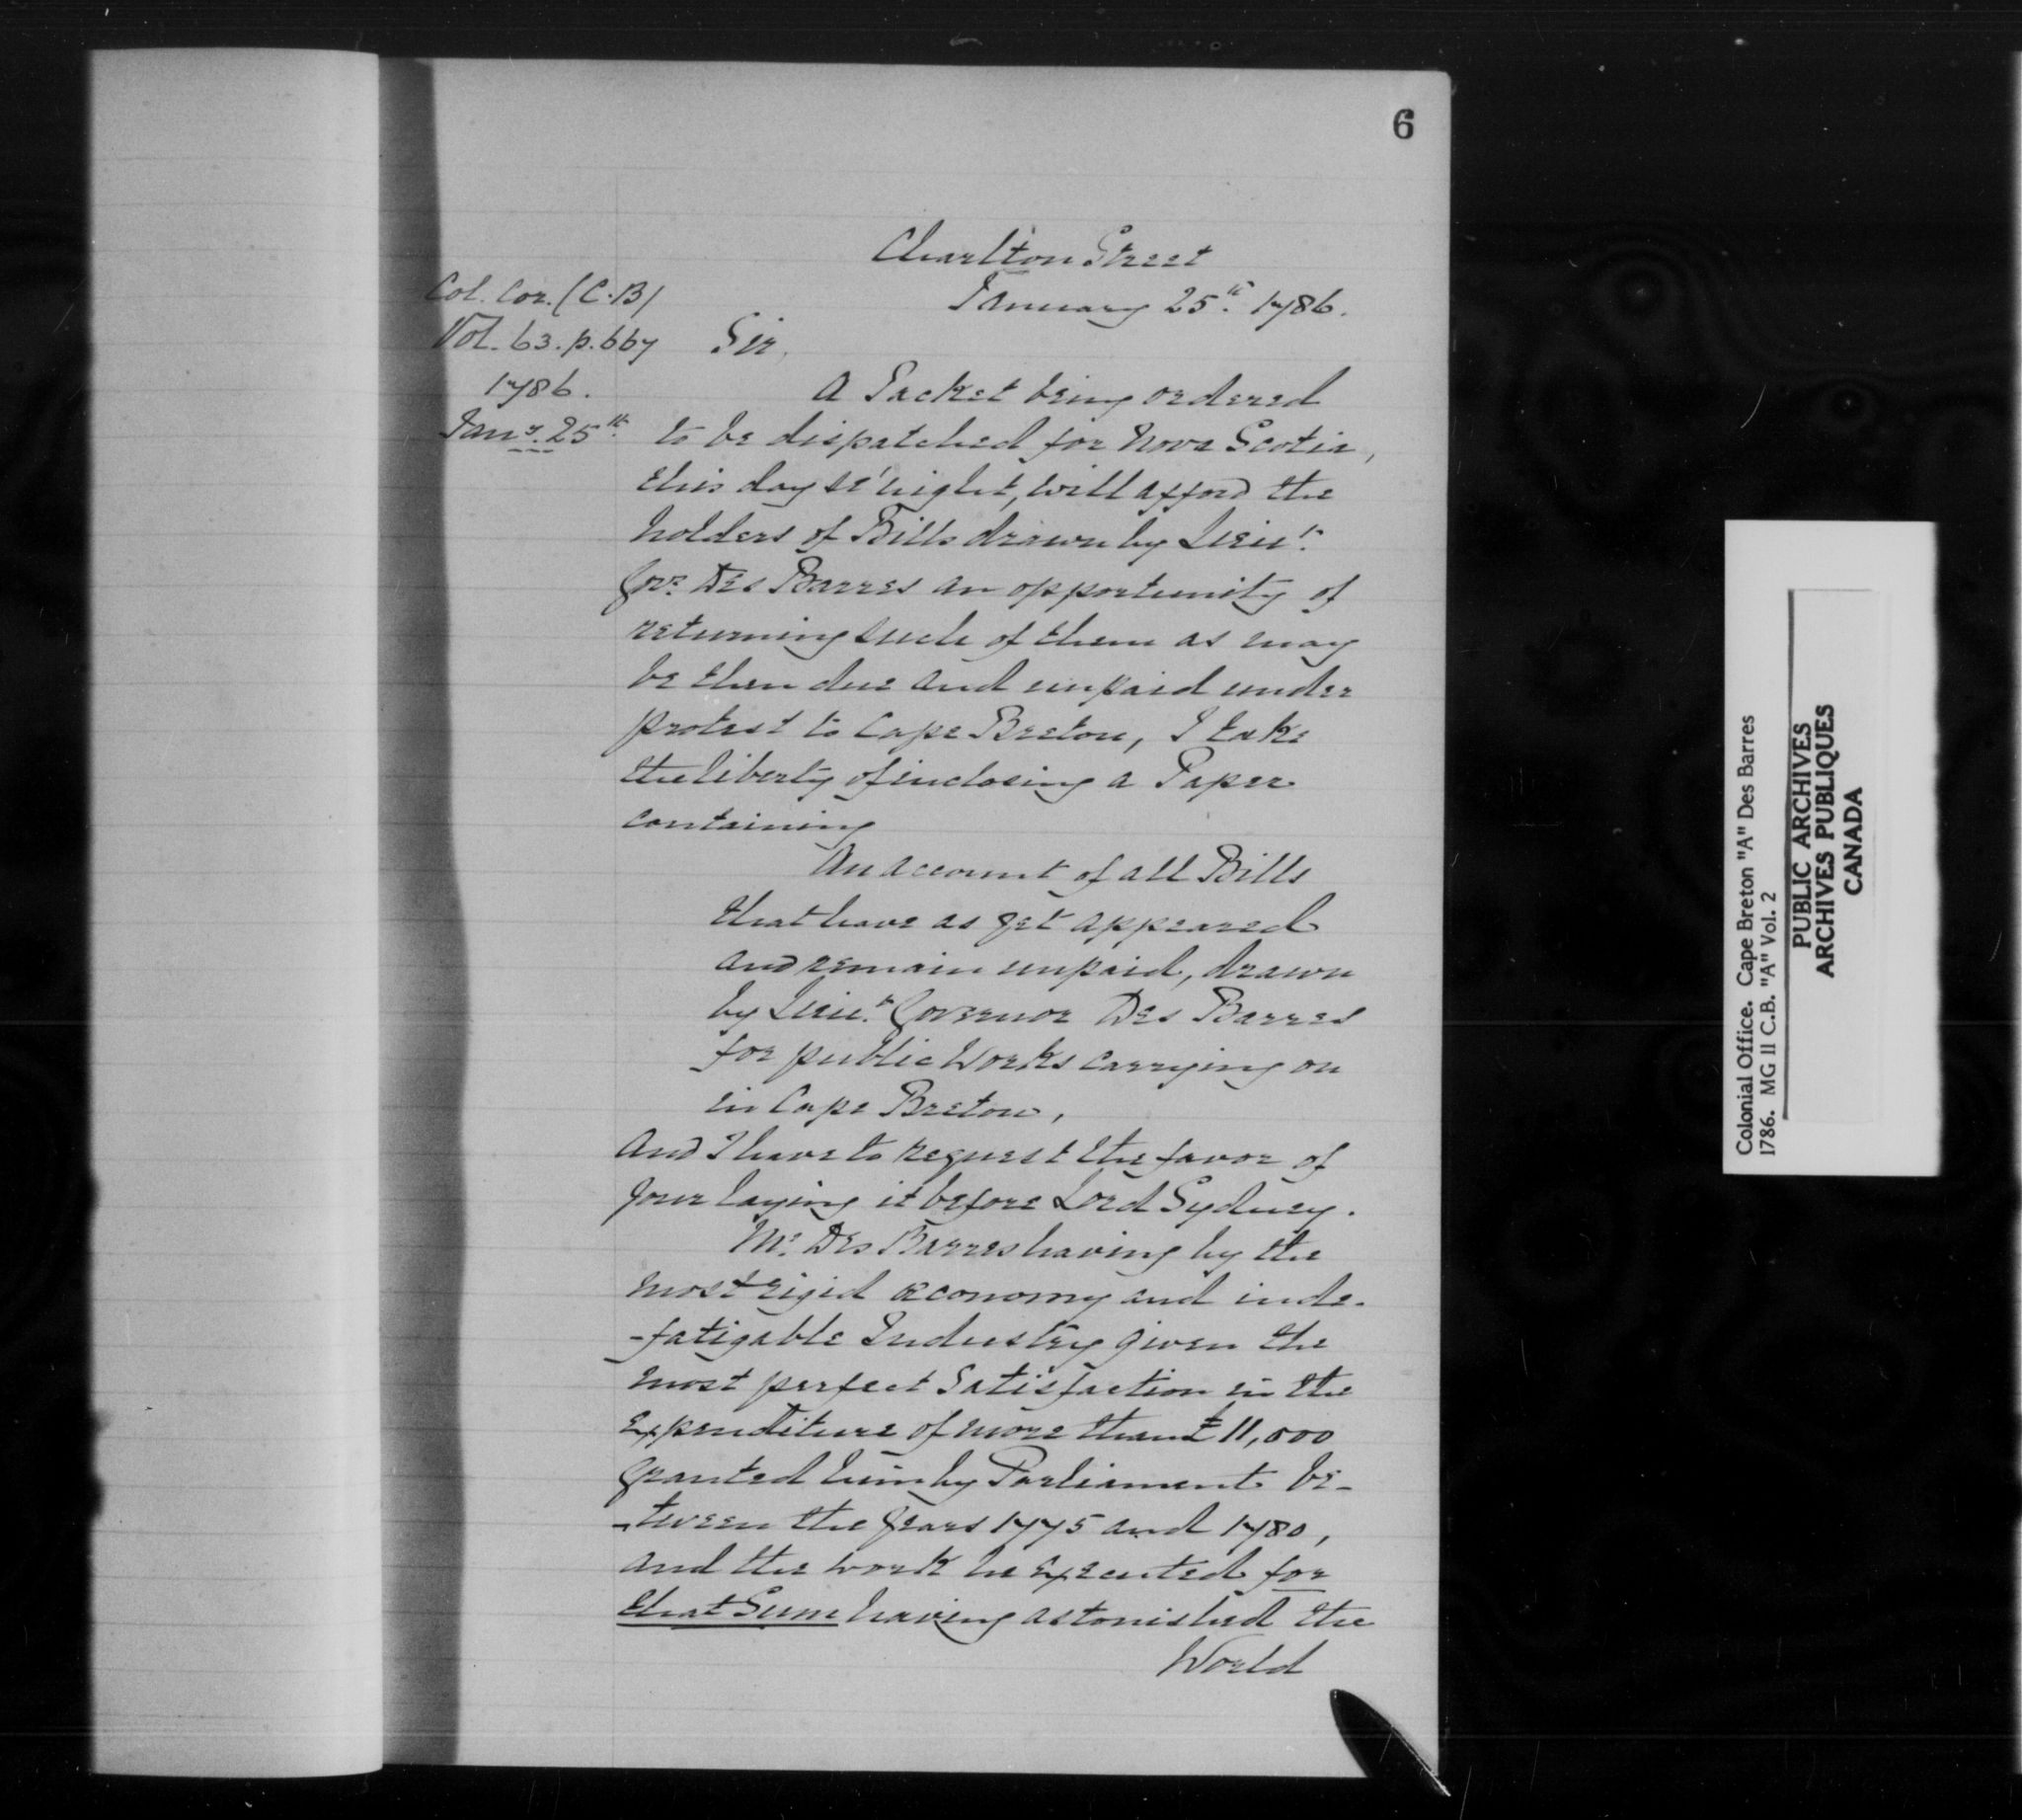 6
Charlton Street
January 25th. 1786.
Col. Cor. (C.B)
Vol. 63. p. 667
1786.
Jany. 25th.
Sir,
A Packet being ordered
to be dispatched for Nova Scotia,
this day se'night, will afford the
holders of Bills drawn by Lieut.
Govr. Des Barres an opportunity of
returning such of them as may
be then due and unpaid under
protest to Cape Breton, I take
the liberty of inclosing a Paper
containing
An account of all Bills
that have as yet appeared
and remain unpaid, drawn
by Lieut. Governor Des Barres
for public Works carrying on
in Cape Breton,
and I have to request the favor of
your laying it before Lord Sydney.
Mr. Des Barres having by the
most rigid œconomy and inde-
-fatigable Industry given the
most perfect Satisfaction in the
Expenditure of more than £11,000
granted him by Parliament be-
-tween the years 1775 and 1780,
and the work he executed for
that Sum having astonished the
World
Colonial Office. Cape Breton "A" Des Barres
1786. MG 11 C.B. "A" Vol. 2
PUBLIC ARCHIVES
ARCHIVES PUBLIQUES
CANADA